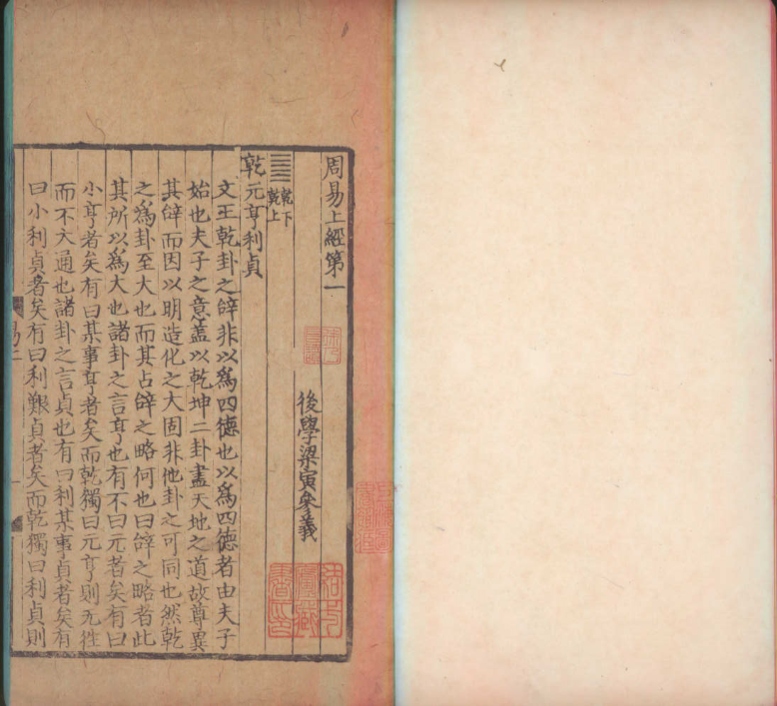 周易上經第一
後學梁寅參義
乾下
乾上
乾元亨利貞
文王乾卦之辝非以爲四德也以爲四德者由夫子
始也夫子之意蓋以乾坤二卦盡天地之道故尊異
其辝而因以明造化之大固非他卦之可同也然乾
之爲卦至大也而其占辝之略何也曰辝之略者此
其所以爲大也諸卦之言亨也有不曰元者矣有曰
小亨者矣有曰某事亨者矣而乾獨曰元亨則无徃
而不大通也諸卦之言貞也有曰利某事貞者矣有
曰小利貞者矣有曰利艱貞者矣而乾獨曰利貞則